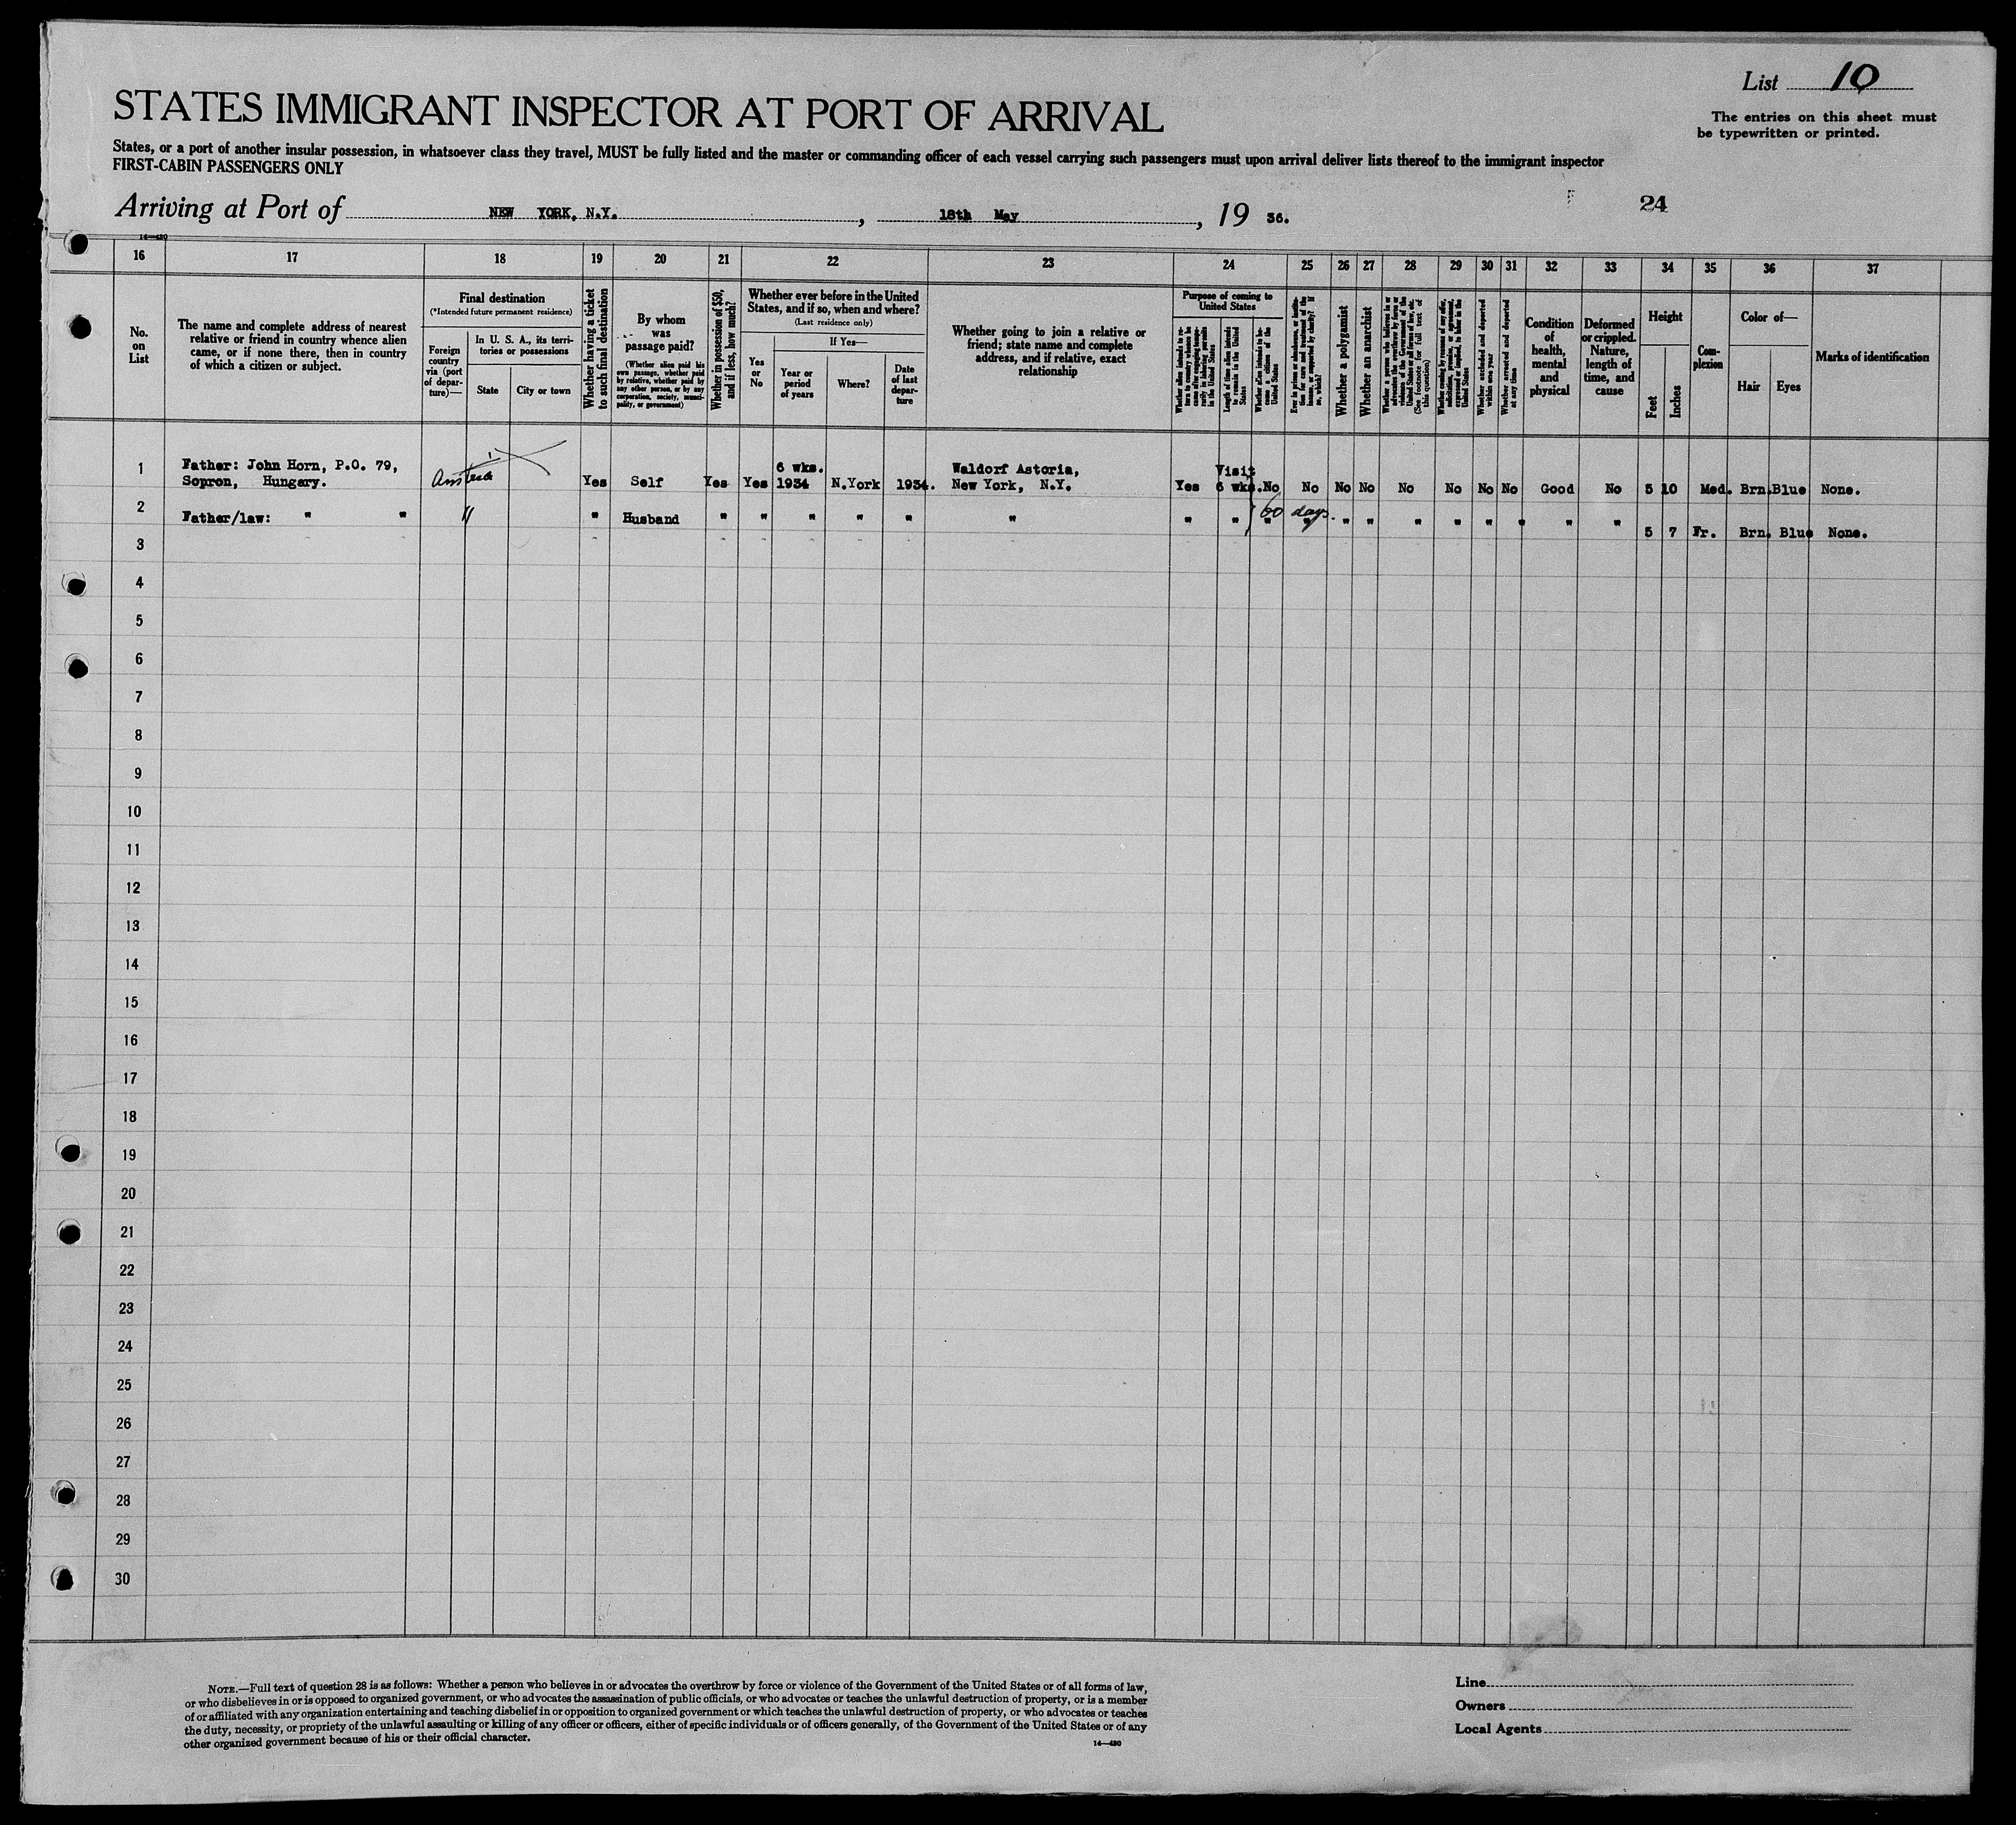 List 10
The entries on this sheet must
be typewritten or printed.
STATES IMMIGRANT INSPECTOR AT PORT OF ARRIVAL
States, or a port of another insular possession, in whatsoever class they travel, MUST be fully listed and the master or commanding officer of each vessel carrying such passengers must upon arrival deliver lists thereof to the immigrant inspector
FIRST-CABIN PASSENGERS ONLY
Arriving at Port of NEW YORK, N.Y. , 18th May , 19 36.
24
14—430
16 17 18 19 20 21 22 23 24 25 26 27 28 29 30 31 32 33 34 35 36 37
No.
on
List
The name and complete address of nearest
relative or friend in country whence alien
came, or if none there, then in country
of which a citizen or subject.
Final destination
(*Intended future permanent residence)
Foreign
country
via (port
of depar-
ture)—
In U. S. A., its terri-
tories or possessions
State
City or town
Whether having a ticket
to such final destination
By whom
was
passage paid?
(Whether alien paid his
own passage, whether paid
by relative, whether paid by
any other person, or by any
corporation, society, munici-
pality, or government)
Whether in possession of $50,
and if less, how much?
Whether ever before in the United
States, and if so, when and where?
(Last residence only)
Yes
or
No
If Yes—
Year or
period
of years
Where?
Date
of last
depar-
ture
Whether going to join a relative or
friend; state name and complete
address, and if relative, exact
relationship
Purpose of coming to
United States
Length of time alien intends
to remain in the United
States
Whether alien intends to be-
come a citizen of the
United States
Whether a polygamist
Whether an anarchist
(See footnote for full text of
this question)
Whether excluded and deported
within one year
Whether arrested and deported
at any time
Condition
of
health,
mental
and
physical
Deformed
or crippled.
Nature,
length of
time, and
cause
Height
Feet
Inches
Com-
plexion
Color of—
Hair
Eyes
Marks of identification
1 Father: John Horn, P.O. 79,
Sopron, Hungary. Austria Yes Self Yes Yes 6 wks.
1934 N.York 1934. Waldorf Astoria,
New York, N.Y. Yes Visit
6 wks. No No No No No No No No Good No 5 10 Med. Brn. Blue None.
2 Father/law: " " " " Husband " " " " " " " " " 60 days. " " " " " " " " "
5 7 Fr. Brn. Blue None.
3
4
5
6
7
8
9
10
11
12
13
14
15
16
17
18
19
20
21
22
23
24
25
26
27
28
29
30
NOTE.—Full text of question 28 is as follows: Whether a person who believes in or advocates the overthrow by force or violence of the Government of the United States or of all forms of law,
or who disbelieves in or is opposed to organized government, or who advocates the assassination of public officials, or who advocates or teaches the unlawful destruction of property, or is a member
of or affiliated with any organization entertaining and teaching disbelief in or opposition to organized government or which teaches the unlawful destruction of property, or who advocates or teaches
the duty, necessity, or propriety of the unlawful assaulting or killing of any officer or officers, either of specific individuals or of officers generally, of the Government of the United States or of any
other organized government because of his or their official character.
14—430
Line
Owners
Local Agents